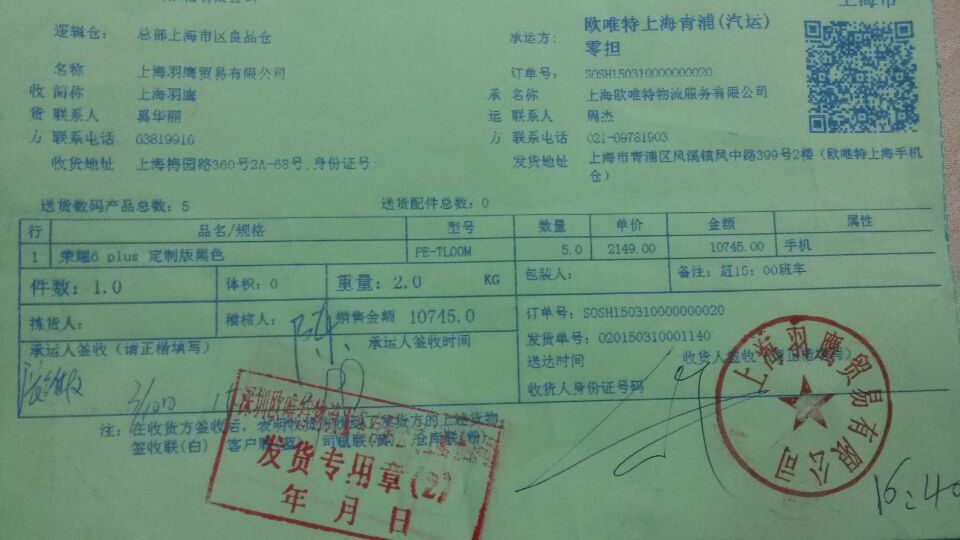 上海市
逻辑仓: 总部上海市区良品仓
承运方: 欧唯特上海青浦(汽运)零担
名称 上海羽鹰贸易有限公司
订单号: SOSH150310000000020
收 简称 上海羽鹰
承 名称 上海欧唯特物流服务有限公司
货 联系人 奚华丽
运 联系人 周杰
方 联系电话 03819916
方 联系电话 021-69781903
收货地址 上海市 园路360号2A-68号,身份证号:
发货地址 上海市青浦区凤溪镇凤中路399号2楼（欧唯特上海手机仓）
送货数码产品总数: 5 送货配件总数: 0
行 品名/规格 型号 数量 单价 金额 属性
1 荣耀6 plus 定制版黑色 PE-TL00M 5.0 2149.00 10745.00 手机
件数: 1.0 体积: 0 重量: 2.0 KG 包装人: 备注: 赶15: 00班车
拣货人: 稽核人: 销售金额 10745.0
订单号: SOSH150310000000020
发货单号: 020150310001140
承运人签收（请正楷填写） 承运人签收时间
送达时间 收货人签收（请正楷填写）
收货人身份证号码
注: 在收货方签收后, 表明收货方 发货方的上述货物。
签收联(白) 客户联(蓝) 司机联(黄) 仓库联(粉)
发货专用章(2)
年 月 日
上海羽鹰贸易有限公司
16:40